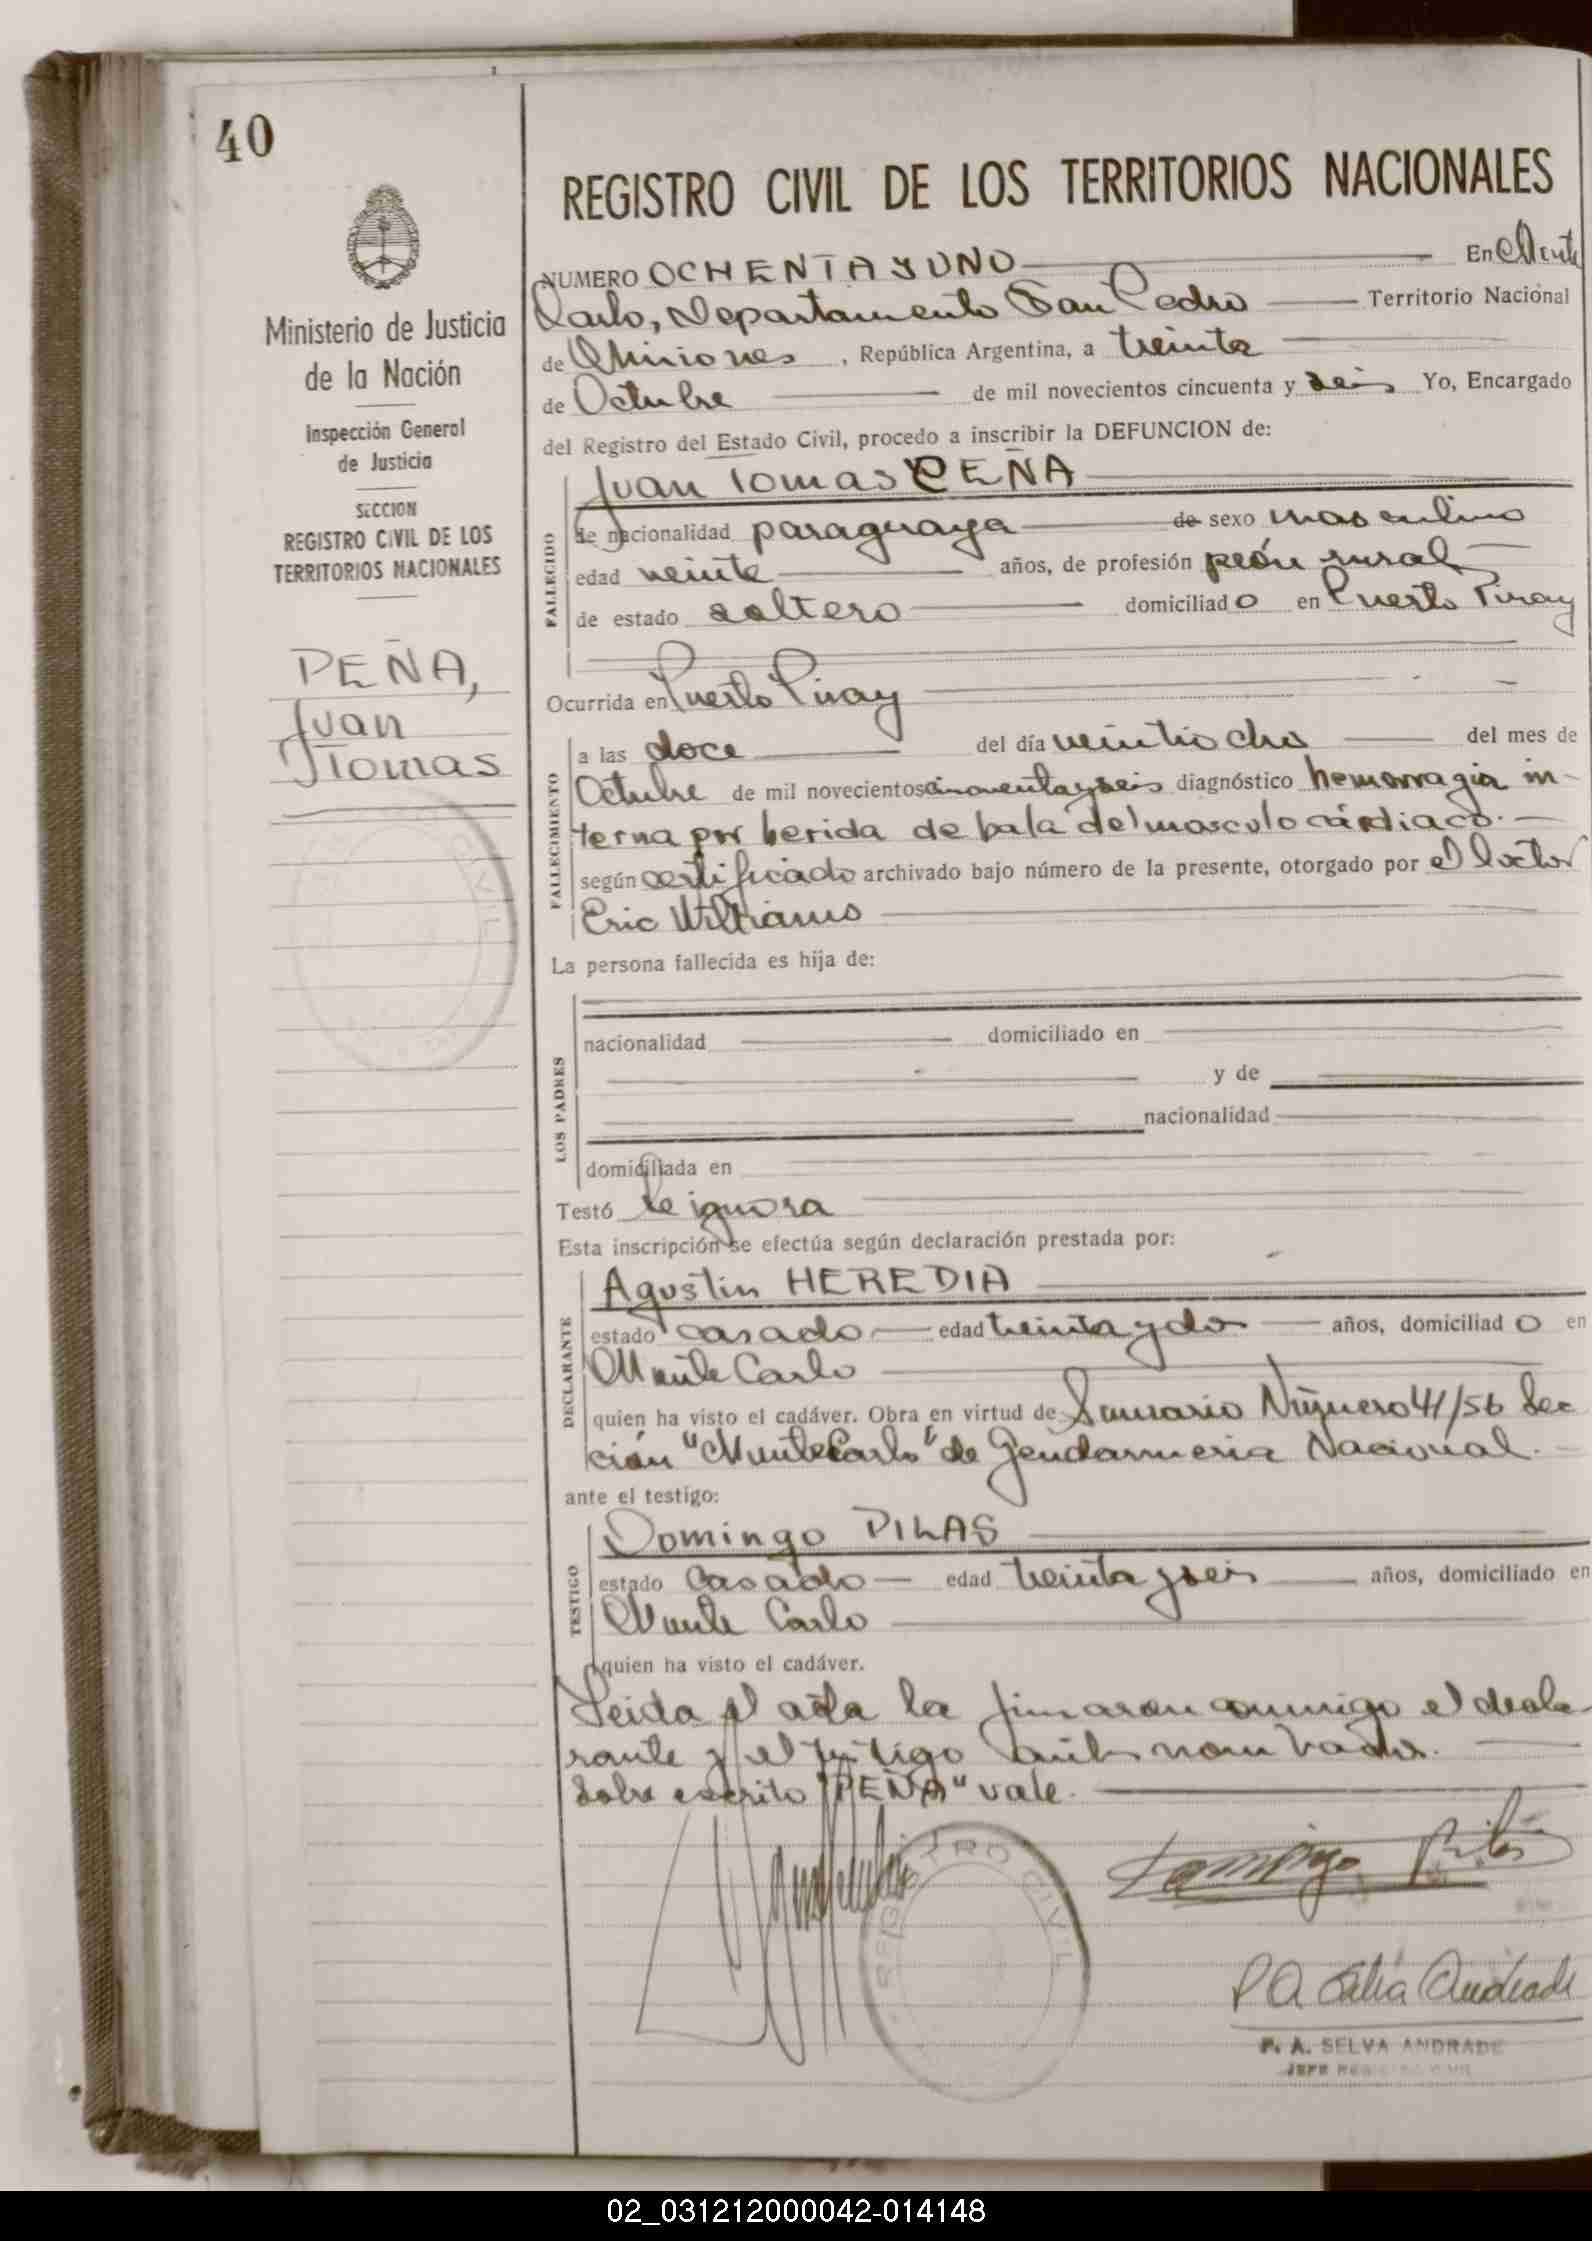 40
Ministerio de Justicia
de la Nación
Inspección General
de Justicia
SECCION
REGISTRO CIVIL DE LOS
TERRITORIOS NACIONALES
PEÑA,
Juan
Tomas
REGISTRO CIVIL DE LOS TERRITORIOS NACIONALES
NUMERO OCHENTA Y UNO En Monte
Carlo, Departamento San Pedro Territorio Nacional
de Misiones, República Argentina, a treinta
de Octubre de mil novecientos cincuenta y seis Yo, Encargado
del Registro del Estado Civil, procedo a inscribir la DEFUNCION de:
Juan Tomas PEÑA
FALLECIDO
de nacionalidad paraguaya de sexo masculino
edad veinte años, de profesión peón rural
de estado soltero domiciliado en Puerto Piray
Ocurrida en Puerto Piray
FALLECIMIENTO
a las doce del día veintiocho del mes de
Octubre de mil novecientos cincuenta y seis diagnóstico hemorragia in-
terna por herida de bala del musculo cárdiaco.
según certificado archivado bajo número de la presente, otorgado por el doctor
Eric Williams
La persona fallecida es hija de:
LOS PADRES
nacionalidad domiciliado en
y de
nacionalidad
domiciliada en
Testó Se ignora
Esta inscripción se efectúa según declaración prestada por:
DECLARANTE
Agustin HEREDIA
estado casado edad treinta y dos años, domiciliado en
Monte Carlo
quien ha visto el cadáver. Obra en virtud de Sumario Número 41/56 Sec
ción "Monte Carlo" de Gendarmeria Nacional.
ante el testigo:
TESTIGO
Domingo PILAS
estado casado edad treinta y seis años, domiciliado en
Monte Carlo
quien ha visto el cadáver.
Leida el acta la firmaron conmigo el decla
rante y el testigo antes nombrados.
Sobre escrito "PEÑA" vale.
REGISTRO CIVIL
Domingo Pilas
P A Selva Andrade
P. A. SELVA ANDRADE
JEFE REGISTRO CIVIL
02_031212000042-014148